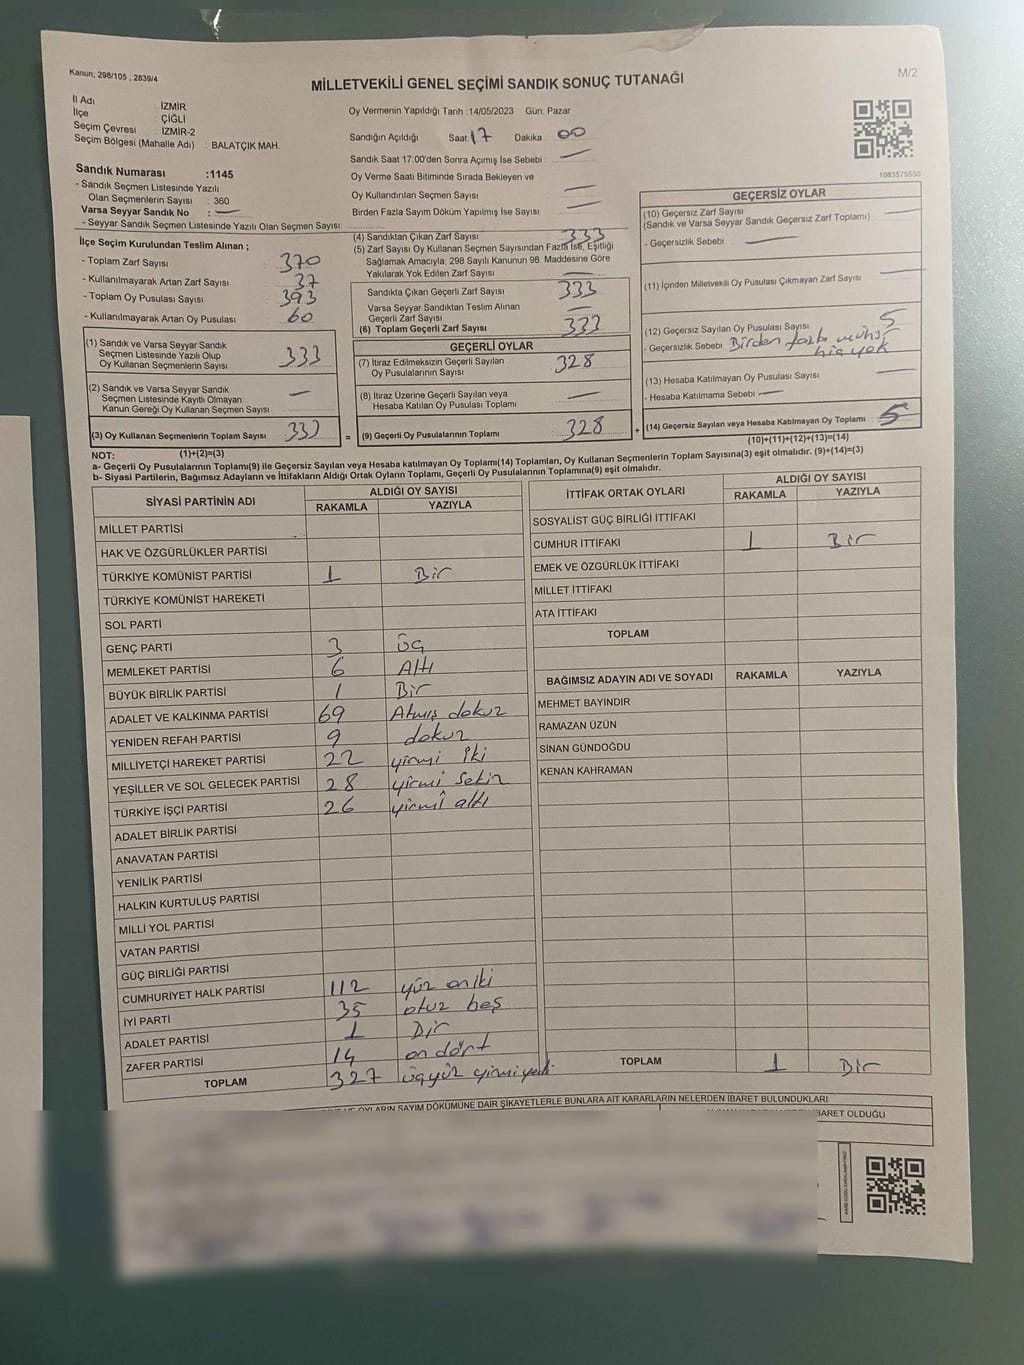 Kanun; 298/105 , 2839/4
M/2
MİLLETVEKİLİ GENEL SEÇİMİ SANDIK SONUÇ TUTANAĞI
İl Adı : İZMİR
İlçe : ÇİĞLİ
Seçim Çevresi : İZMİR-2
Seçim Bölgesi (Mahalle Adı) : BALATÇIK MAH.
Sandık Numarası :1145
- Sandık Seçmen Listesinde Yazılı
Olan Seçmenlerin Sayısı : 360
Varsa Seyyar Sandık No : —
- Seyyar Sandık Seçmen Listesinde Yazılı Olan Seçmen Sayısı:
Oy Vermenin Yapıldığı Tarih :14/05/2023 Gün: Pazar
Sandığın Açıldığı Saat: 17 Dakika : 00
Sandık Saat 17:00'den Sonra Açımış İse Sebebi : —
Oy Verme Saati Bitiminde Sırada Bekleyen ve
Oy Kullandırılan Seçmen Sayısı —
Birden Fazla Sayım Döküm Yapılmış İse Sayısı —
1083575550
İlçe Seçim Kurulundan Teslim Alınan ;
- Toplam Zarf Sayısı : 370
- Kullanılmayarak Artan Zarf Sayısı : 37
- Toplam Oy Pusulası Sayısı : 393
- Kullanılmayarak Artan Oy Pusulası : 60
(1) Sandık ve Varsa Seyyar Sandık
Seçmen Listesinde Yazılı Olup
Oy Kullanan Seçmenlerin Sayısı 333
(2) Sandık ve Varsa Seyyar Sandık
Seçmen Listesinde Kayıtlı Olmayan
Kanun Gereği Oy Kullanan Seçmen Sayısı —
(3) Oy Kullanan Seçmenlerin Toplam Sayısı 333
(1)+(2)=(3)
(4) Sandıktan Çıkan Zarf Sayısı : 333
(5) Zarf Sayısı Oy Kullanan Seçmen Sayısından Fazla İse, Eşitliği
Sağlamak Amacıyla; 298 Sayılı Kanunun 98. Maddesine Göre
Yakılarak Yok Edilen Zarf Sayısı —
Sandıkta Çıkan Geçerli Zarf Sayısı 333
Varsa Seyyar Sandıktan Teslim Alınan
Geçerli Zarf Sayısı —
(6) Toplam Geçerli Zarf Sayısı 333
GEÇERLİ OYLAR
(7) İtiraz Edilmeksizin Geçerli Sayılan
Oy Pusulalarının Sayısı 328
(8) İtiraz Üzerine Geçerli Sayılan veya
Hesaba Katılan Oy Pusulası Toplamı —
= (9) Geçerli Oy Pusulalarının Toplamı 328
GEÇERSİZ OYLAR
(10) Geçersiz Zarf Sayısı
(Sandık ve Varsa Seyyar Sandık Geçersiz Zarf Toplamı) —
- Geçersizlik Sebebi : —
(11) İçinden Milletvekili Oy Pusulası Çıkmayan Zarf Sayısı —
(12) Geçersiz Sayılan Oy Pusulası Sayısı 5
- Geçersizlik Sebebi : Birden fazla mühür
hiç yok
(13) Hesaba Katılmayan Oy Pusulası Sayısı —
- Hesaba Katılmama Sebebi : —
+ (14) Geçersiz Sayılan veya Hesaba Katılmayan Oy Toplamı 5
(10)+(11)+(12)+(13)=(14)
NOT:
a- Geçerli Oy Pusulalarının Toplamı(9) ile Geçersiz Sayılan veya Hesaba katılmayan Oy Toplamı(14) Toplamları, Oy Kullanan Seçmenlerin Toplam Sayısına(3) eşit olmalıdır. (9)+(14)=(3)
b- Siyasi Partilerin, Bağımsız Adayların ve İttifakların Aldığı Ortak Oyların Toplamı, Geçerli Oy Pusulalarının Toplamına(9) eşit olmalıdır.
SİYASİ PARTİNİN ADI ALDIĞI OY SAYISI
RAKAMLA YAZIYLA
MİLLET PARTİSİ
HAK VE ÖZGÜRLÜKLER PARTİSİ
TÜRKİYE KOMÜNİST PARTİSİ 1 Bir
TÜRKİYE KOMÜNİST HAREKETİ
SOL PARTİ
GENÇ PARTİ 3 üç
MEMLEKET PARTİSİ 6 Altı
BÜYÜK BİRLİK PARTİSİ 1 Bir
ADALET VE KALKINMA PARTİSİ 69 Atmış dokuz
YENİDEN REFAH PARTİSİ 9 dokuz
MİLLİYETÇİ HAREKET PARTİSİ 22 yirmi iki
YEŞİLLER VE SOL GELECEK PARTİSİ 28 yirmi sekiz
TÜRKİYE İŞÇİ PARTİSİ 26 yirmi altı
ADALET BİRLİK PARTİSİ
ANAVATAN PARTİSİ
YENİLİK PARTİSİ
HALKIN KURTULUŞ PARTİSİ
MİLLİ YOL PARTİSİ
VATAN PARTİSİ
GÜÇ BİRLİĞİ PARTİSİ
CUMHURİYET HALK PARTİSİ 112 yüz oniki
İYİ PARTİ 35 otuz beş
ADALET PARTİSİ 1 Bir
ZAFER PARTİSİ 14 on dört
TOPLAM 327 üçyüz yirmi yedi
İTTİFAK ORTAK OYLARI ALDIĞI OY SAYISI
RAKAMLA YAZIYLA
SOSYALİST GÜÇ BİRLİĞİ İTTİFAKI
CUMHUR İTTİFAKI 1 Bir
EMEK VE ÖZGÜRLÜK İTTİFAKI
MİLLET İTTİFAKI
ATA İTTİFAKI
TOPLAM
BAĞIMSIZ ADAYIN ADI VE SOYADI RAKAMLA YAZIYLA
MEHMET BAYINDIR
RAMAZAN ÜZÜN
SİNAN GÜNDOĞDU
KENAN KAHRAMAN
TOPLAM 1 Bir
OYLARIN SAYIM DÖKÜMÜNE DAİR ŞİKAYETLERLE BUNLARA AİT KARARLARIN NELERDEN İBARET BULUNDUKLARI
İBARET OLDUĞU